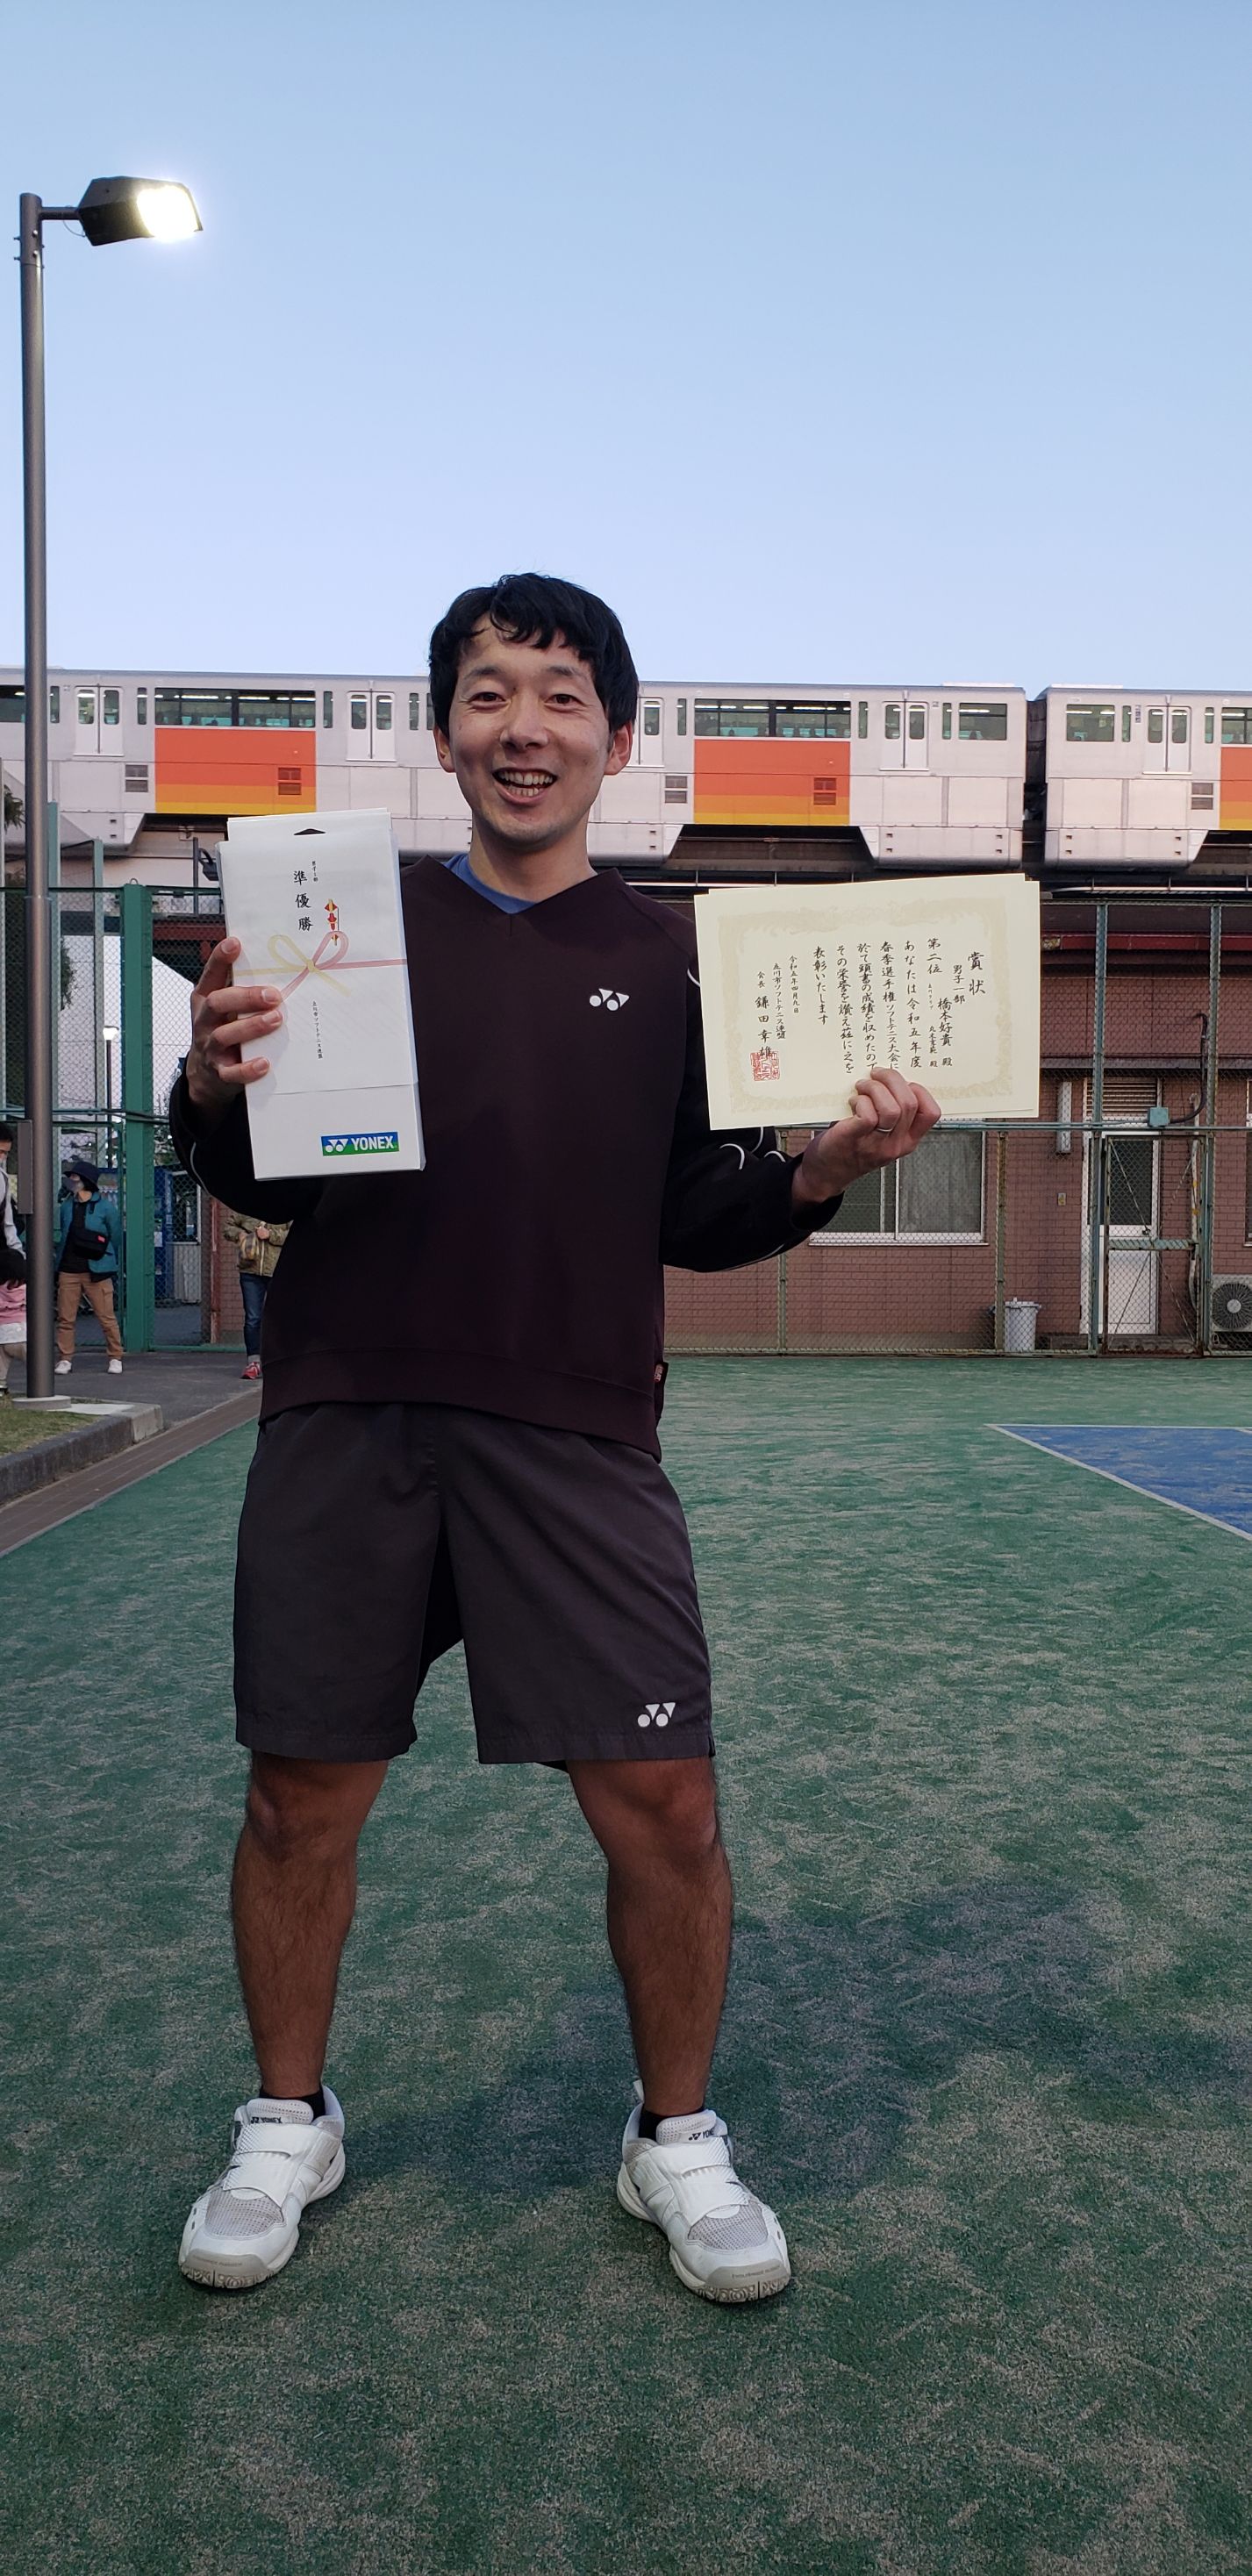 男子一部
準優勝
立川市ソフトテニス連盟
YONEX
賞状
男子一部
第二位
橋本好貴 殿
殿
あなたは令和五年度
春季選手権ソフトテニス大会に
於て頭書の成績を収めたので
その栄誉を讃え茲に之を
表彰いたします
令和五年四月九日
立川市ソフトテニス連盟
会長 鎌田幸雄
YONEX
YONEX